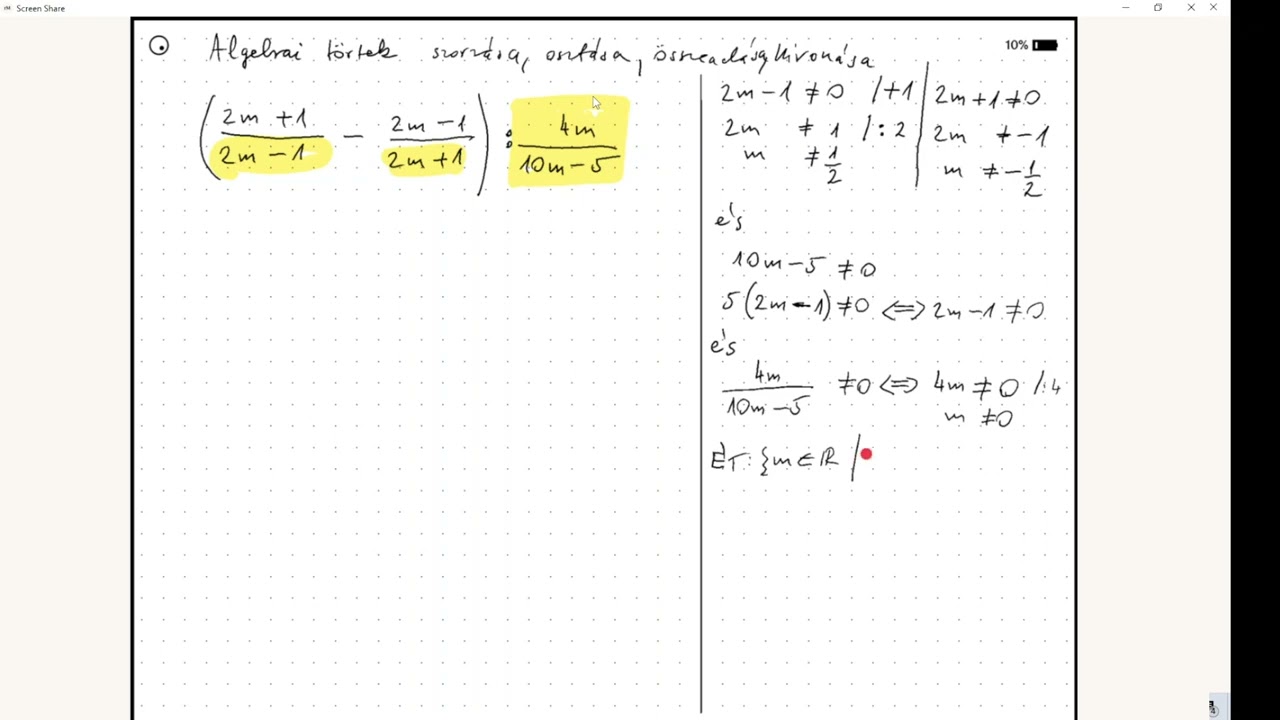 Screen Share
10%
Algebrai törtek szorzása, osztása, összeadása, kivonása
(2m+1/2m-1 - 2m-1/2m+1) : 4m/10m-5
2m-1≠0 /+1
2m ≠ 1 /:2
m ≠ 1/2
2m+1≠0
2m ≠ -1
m ≠ -1/2
és
10m-5 ≠0
5(2m-1)≠0 ⇔ 2m-1≠0
és
4m/10m-5 ≠0 ⇔ 4m≠0 /:4
m ≠0
ÉT: {m∈R |